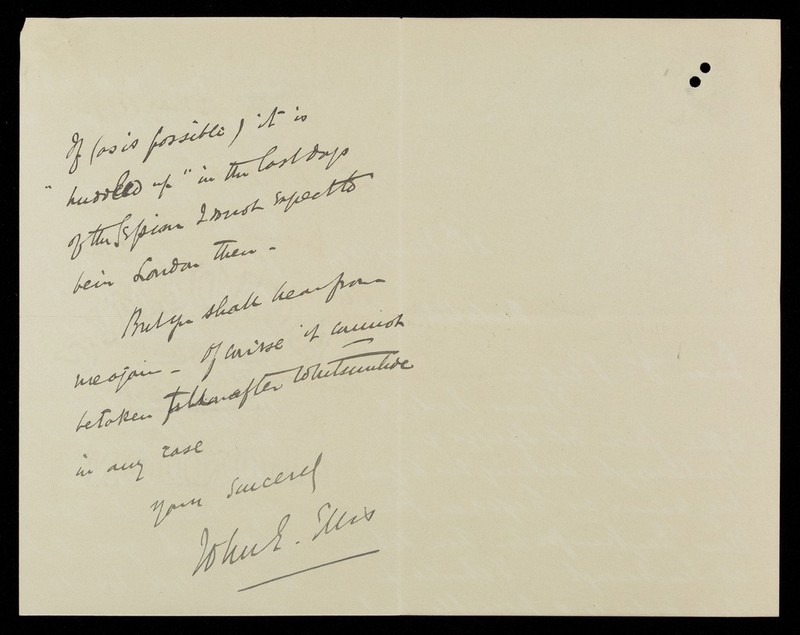 If (as is possible) it is
"huddled up" in the last days
of the Session I do not expect to
be in London then –
But you shall hear from
me again – Of course it cannot
be taken till after Whitsuntide
in any case
Yours sincerely
John E. Ellis